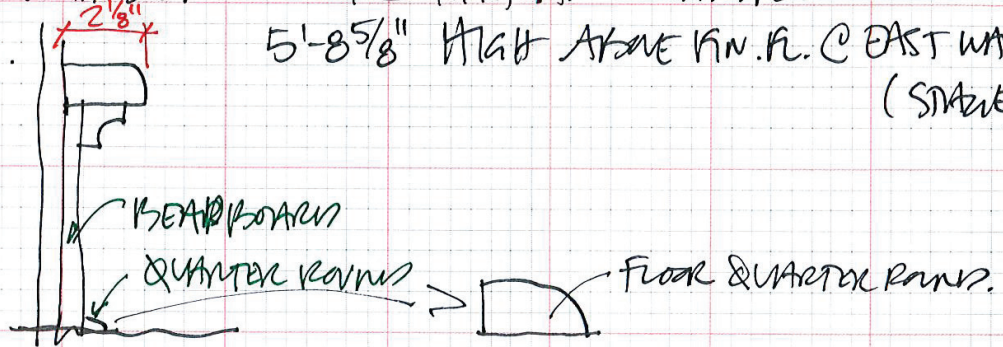 2 1/8"
5'-8 5/8" HIGH ABOVE FIN. FL. @ EAST WA
(
BEADBOARD
QUARTER ROUND
FLOOR QUARTER ROUND.